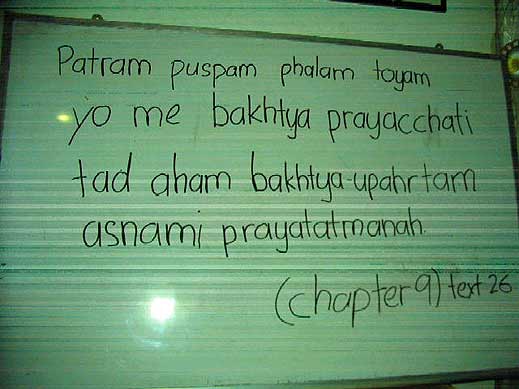 Patram puspam phalam toyam
yo me bakhtya prayacchati
tad aham bakhtya-upahrtam
asnami prayatatmanah.
(chapter 9) text 26